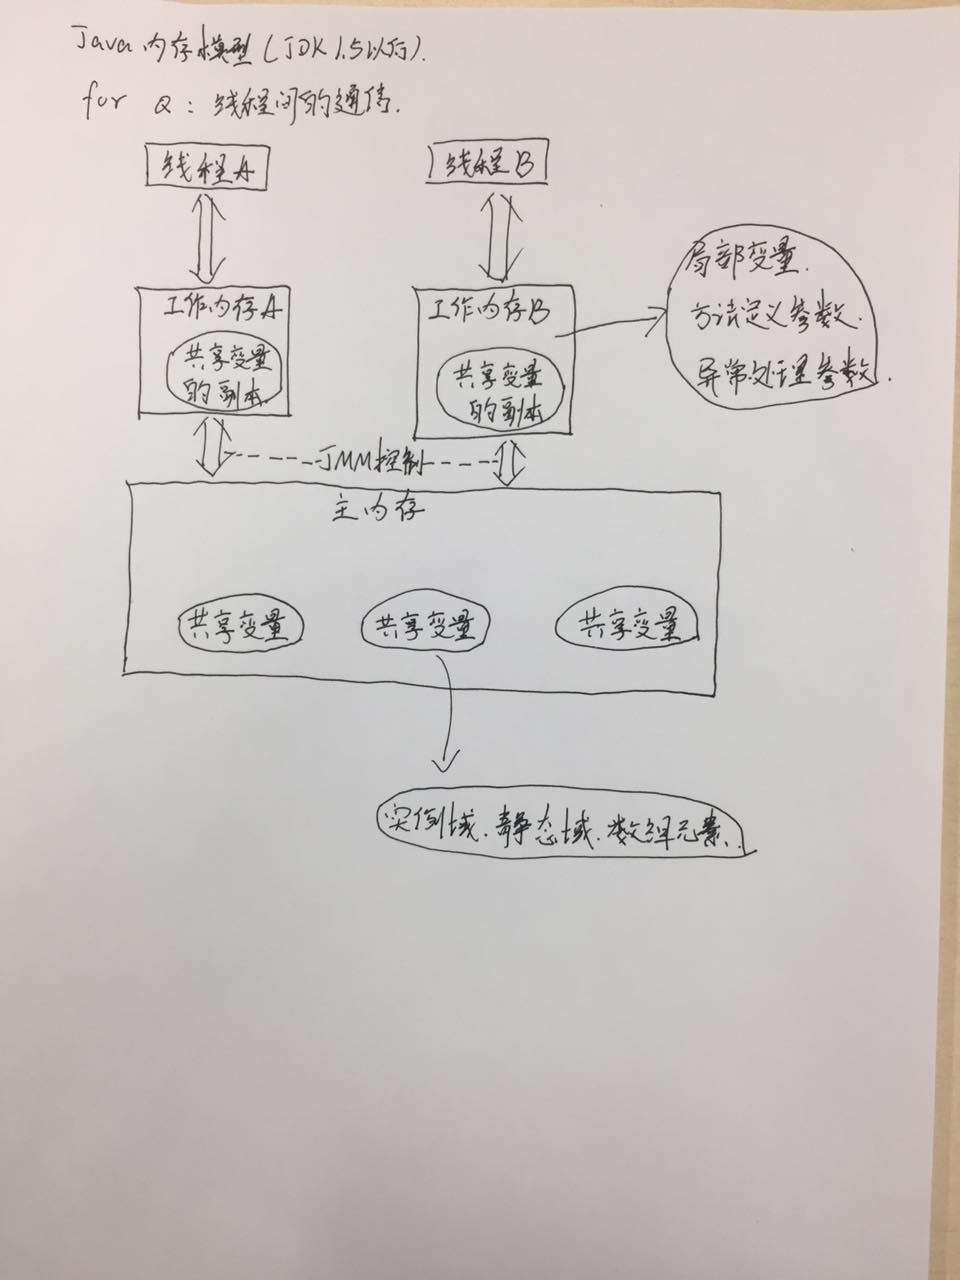 Java 内存模型 (JDK 1.5以后).
for Q: 线程间的通信.
线程A
线程B
工作内存A
共享变量
的副本
工作内存B
共享变量
的副本
局部变量.
方法定义参数.
异常处理参数.
JMM控制
主内存
共享变量
共享变量
共享变量
实例域.静态域.数组元素.